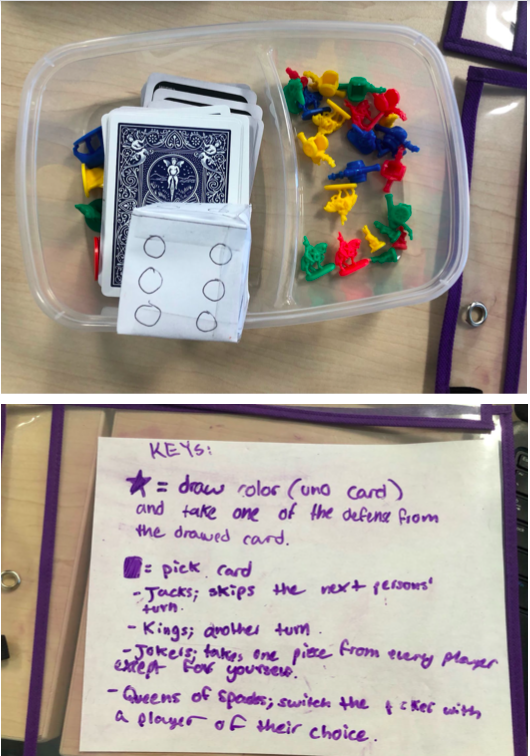 KEYS:
★ = draw color (uno card)
and take one of the defense from
the drawed card.
■ = pick card
- Jacks; skips the next persons'
turn.
- Kings; another turn.
- Jokers; takes one piece from every player
except for yourself.
- Queens of Spades; switch the with
a player of their choice.